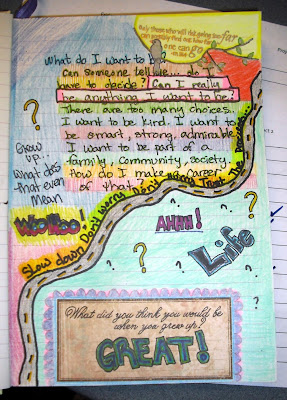 Only those who risk going too far
can possibly find out how far
one can go.
What do I want to be?
Can someone tell me... do I
have to decide? Can I really
be anything I want to be?
There are too many choices..
I want to be kind. I want to
be smart, strong, admirable
I want to be part of a
family, community, society.
How do I make a career
of that
?
Grow
up..
What does
that even
mean
WooHoo!
Slow down Don't worry Don't Hurry Trust The Process...
AHHH!
Life
?
?
?
What did you think you would be
when you grew up?
GREAT!